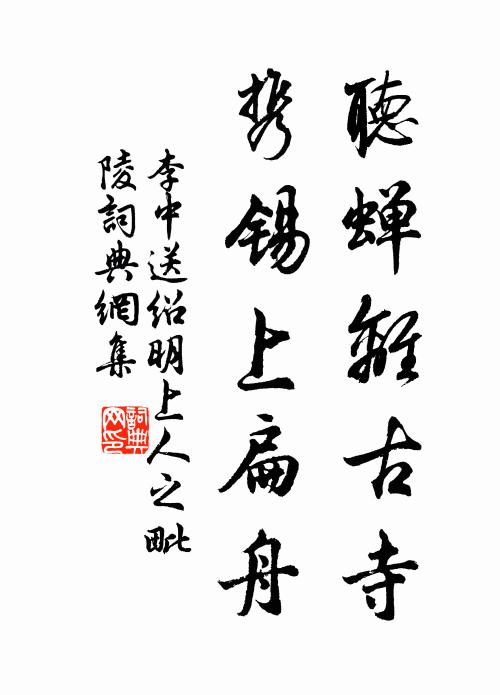 聽蟬離古寺
携錫上扁舟
李中送紹明上人之毗
陵詞典網集
詞典网印